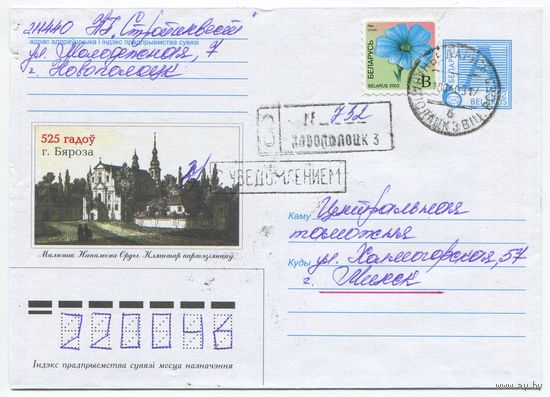 211440 КП "Стройквест"
адрас адпраўшчыка і індэкс прадпрыемства сувязі
ул. Молодежная, 7
г. Новополоцк
Лён
Linum
БЕЛАРУСЬ
B
BELARUS 2002
БЕЛАРУСЬ
З
№ 732
НОВОПОЛОЦК 3
С УВЕДОМЛЕНИЕМ
525 гадоў
г. Бяроза
Малюнак Напалеона Орды. Кляштар картэзіянцаў.
Каму Центральная
таможня
Куды ул. Холмогорская, 57
г. Минск
220046
Індэкс прадпрыемства сувязі месца назначэння
www.ay.by